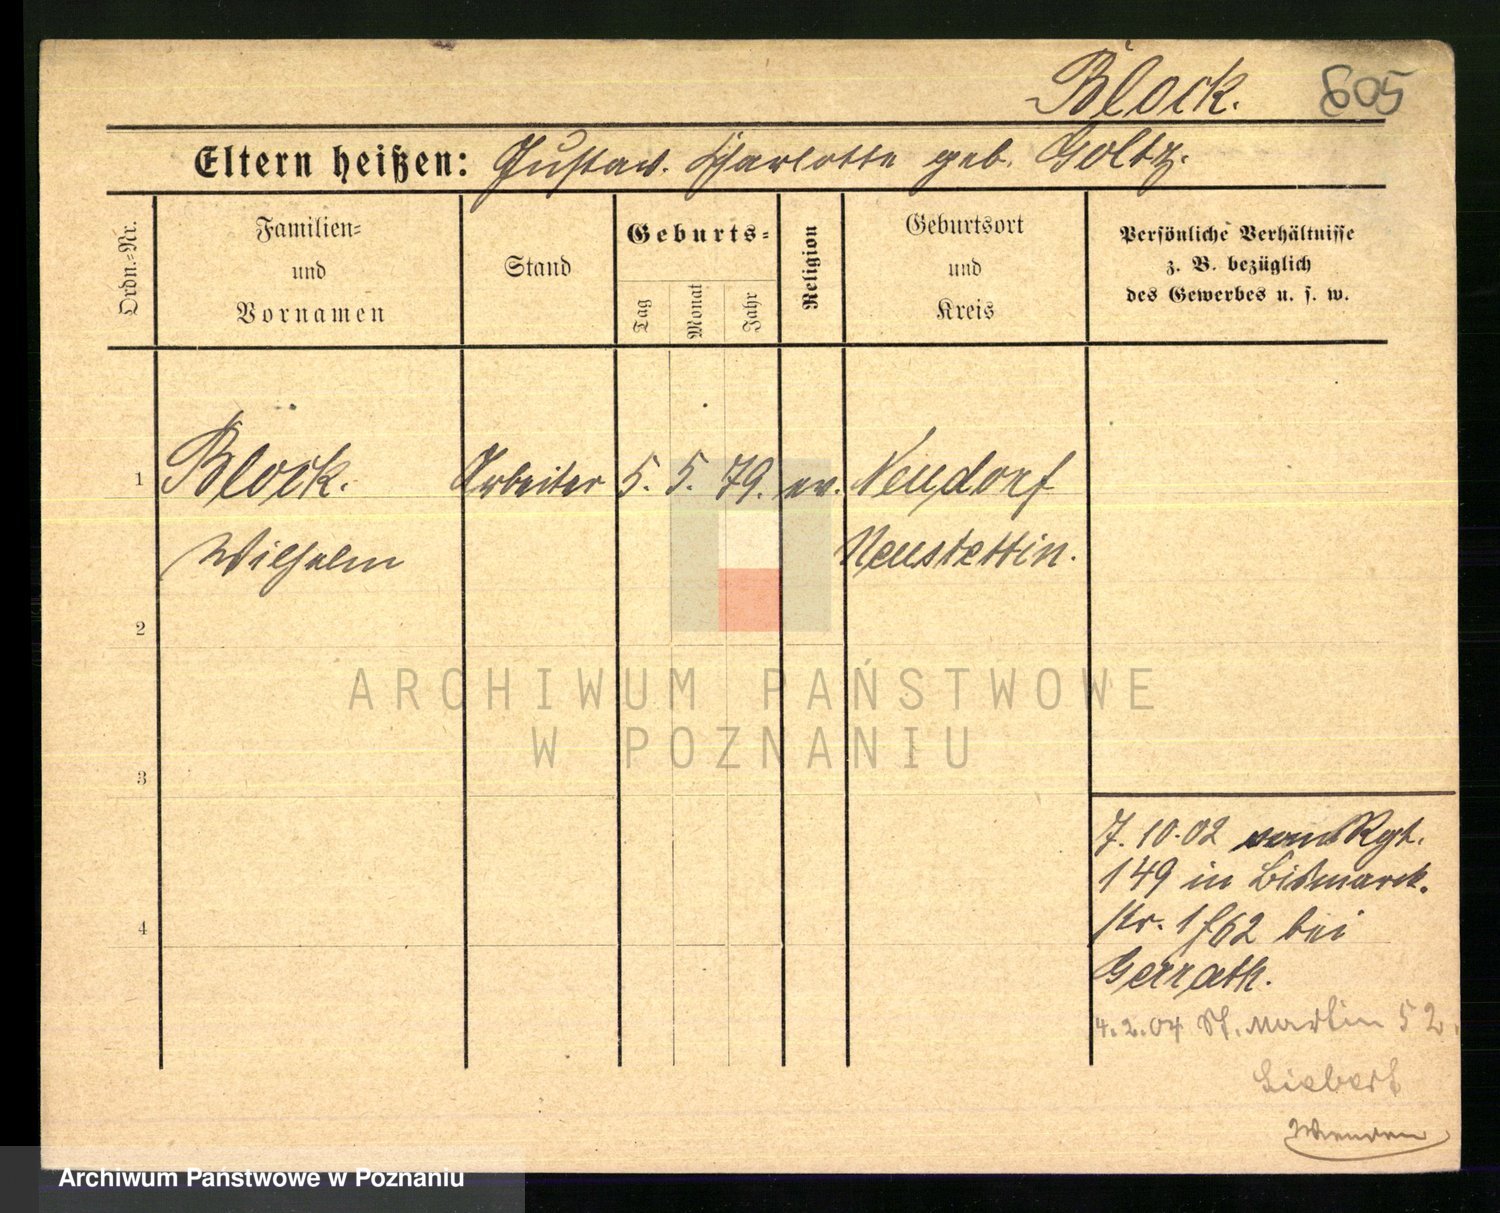 Block. 605
Eltern heißen: Gustav. Charlotte geb. Goltz.
Ordn.-Nr.
Familien-
und
Vornamen
Stand
Geburts-
Tag
Monat
Jahr
Religion
Geburtsort
und
Kreis
Persönliche Verhältnisse
z. B. bezüglich
des Gewerbes u. s. w.
1 Block. Arbeiter 5. 5. 79. ev. Neudorf
Wilhelm Neustettin.
2
ARCHIWUM PAŃSTWOWE
W POZNANIU
3
7. 10. 02 vom Rgt.
149 in Bismarck.
4 str. 1 f62 bei
Gerrath.
4. 2. 04 St. Martin 52.
Liebert
Wenden
Archiwum Państwowe w Poznaniu